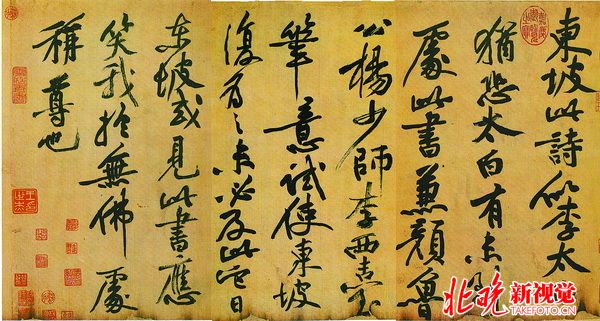 東坡此詩似李太
猶恐太白有未到
處此書兼顏魯
公楊少師李西臺
筆意試使東坡
復為之未必及此它日
東坡或見此書應
笑我於無佛處
稱尊也
北晚新视觉
TAKEFOTO.CN